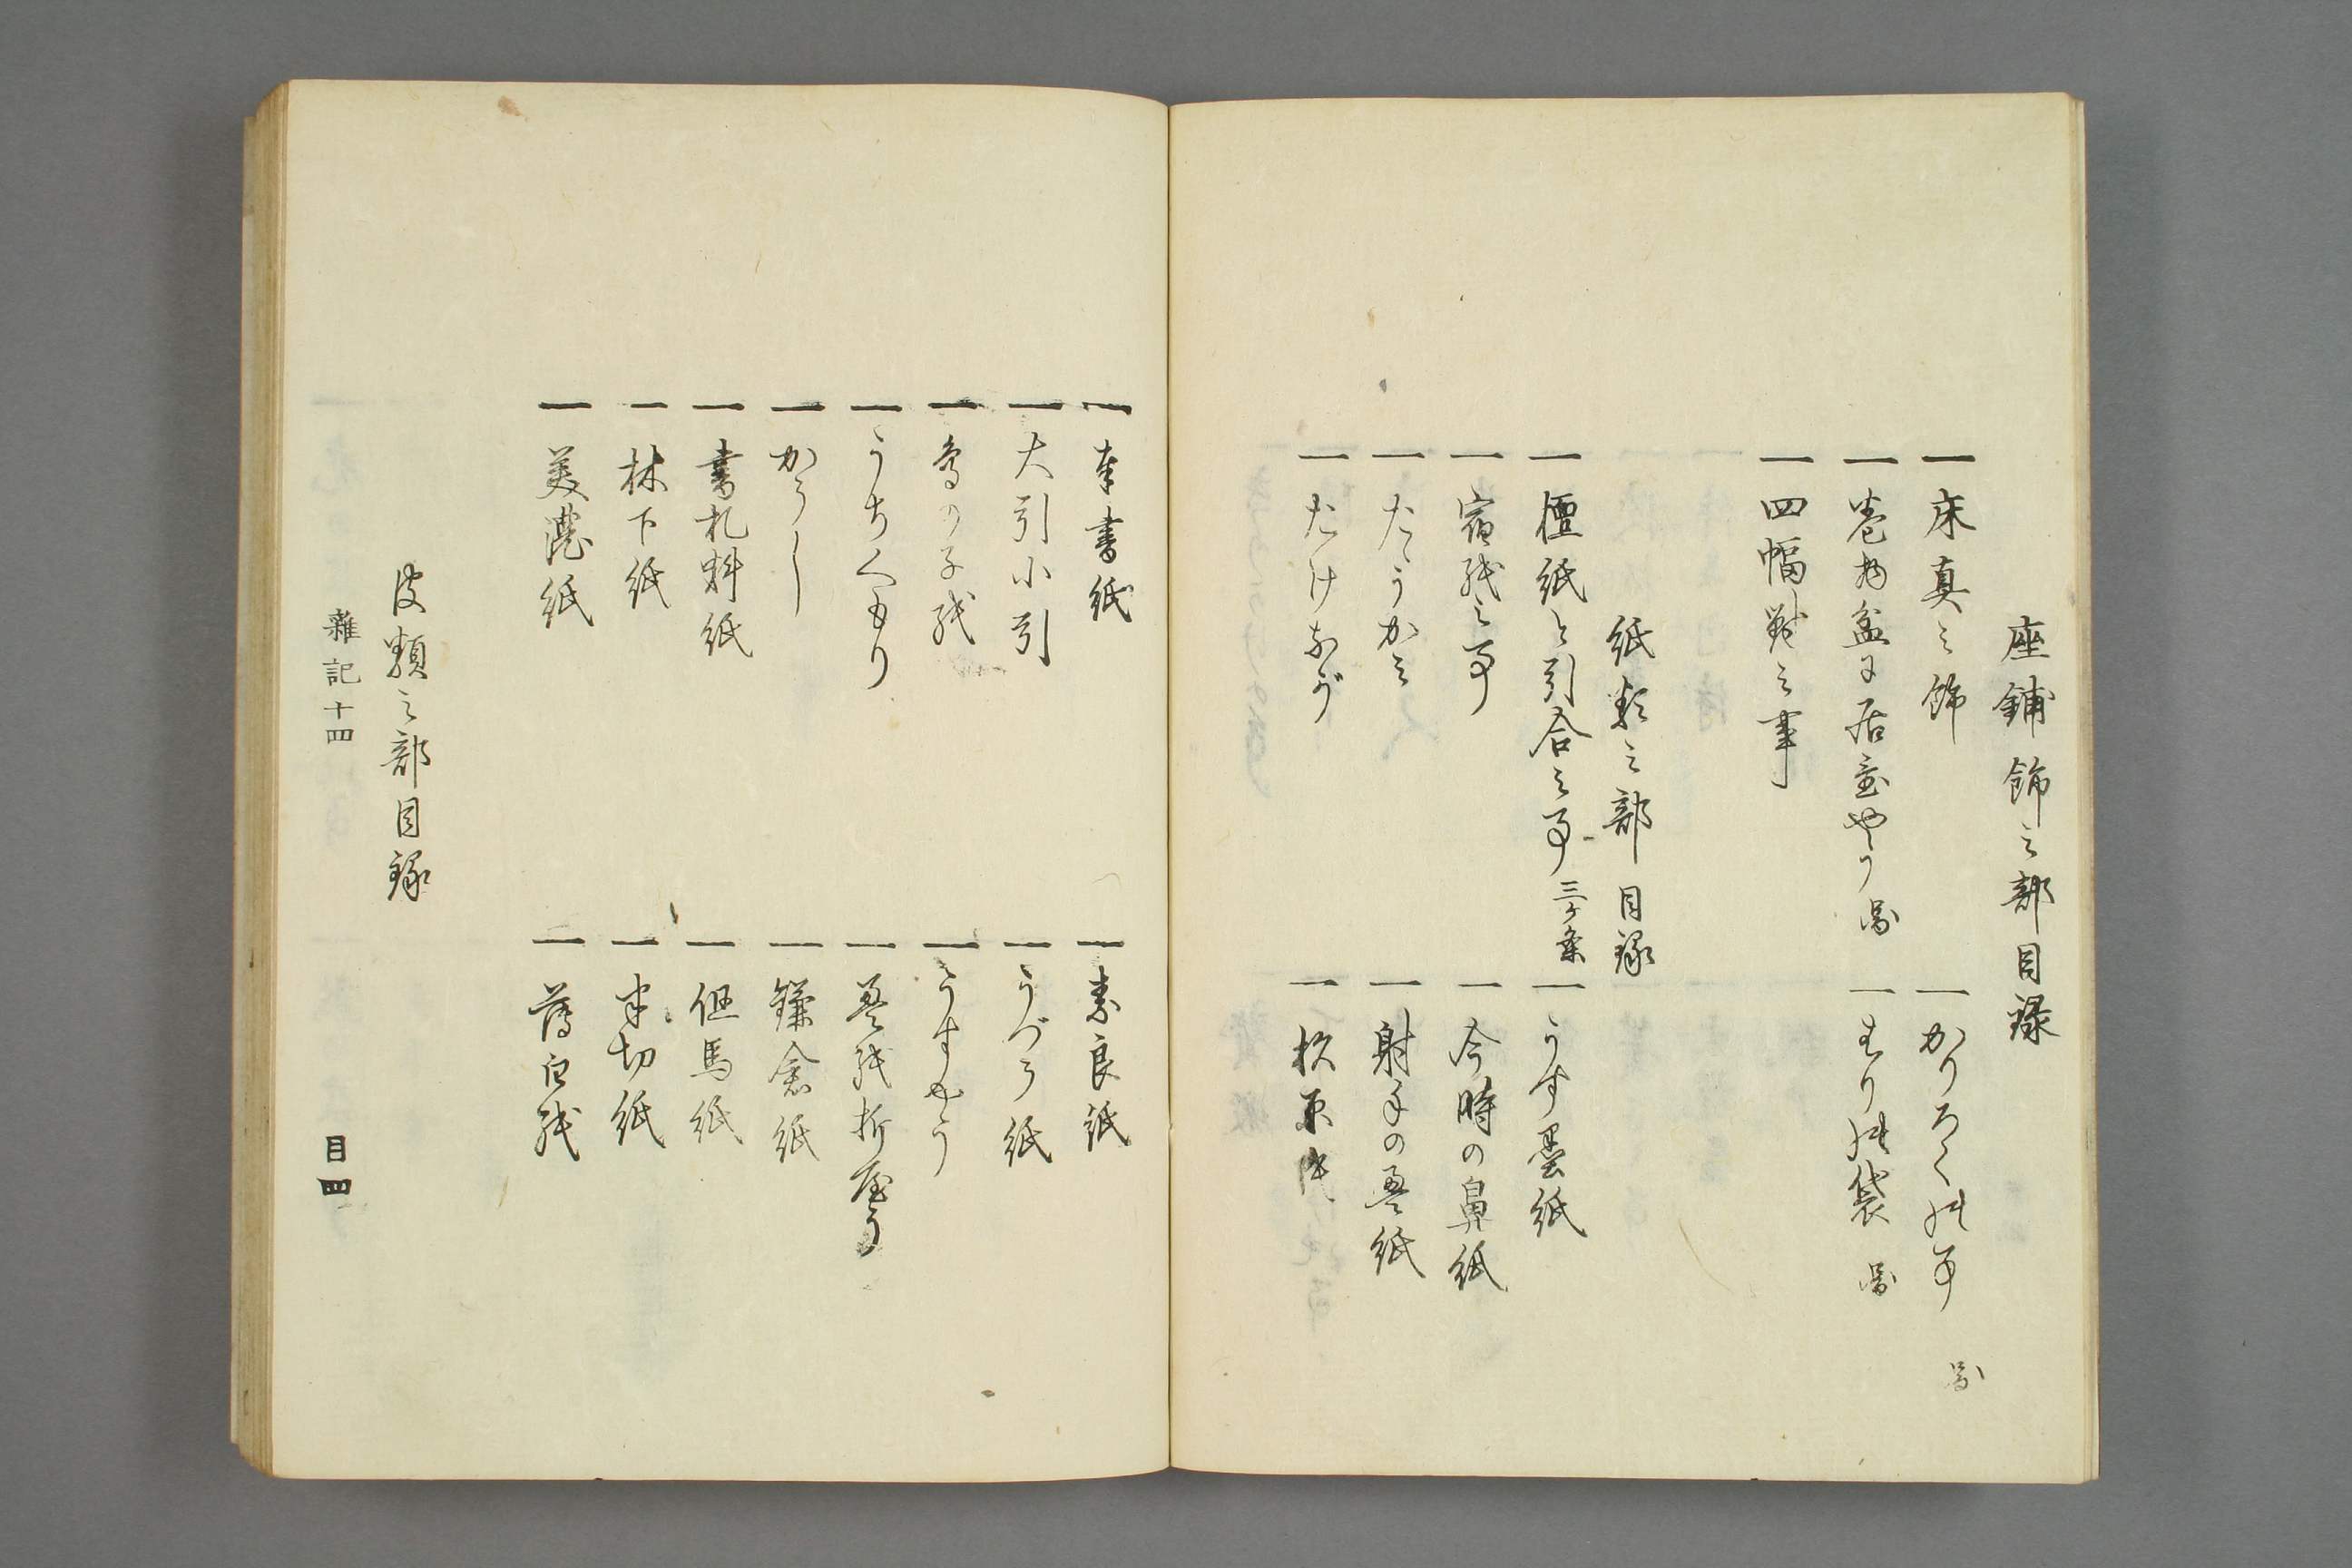 座鋪飾之部目録
一床真之飾
一かりろくの事 図
一巻物盆に居置やう 図
一はり物袋 図
一四幅對之事
紙類之部目録
一檀紙と引合之事 三ケ条
一うす墨紙
一宿紙之事
一今時の鼻紙
一たゝうかミ
一射手の畳紙
一たけなが
一杉原
一奉書紙
一奈良紙
一大引小引
一うづら紙
一鳥の子紙
一うすやう
一うちくもり
一畳紙折
一かうし
一鎌倉紙
一書札料紙
一但馬紙
一林下紙
一半切紙
一美濃紙
一薄白紙
皮類之部目録
雜記十四
目四